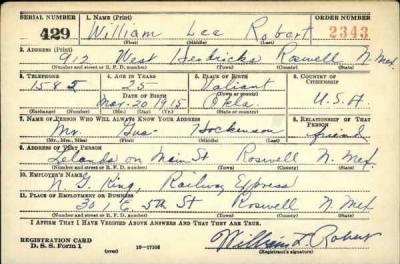 SERIAL NUMBER 1. NAME (Print) ORDER NUMBER
429 William Lee Robert 2343
(First) (Middle) (Last)
2. ADDRESS (Print)
912 West Hendricks Roswell N. Mex
(Number and street or R. F. D. number) (Town) (County) (State)
3. TELEPHONE 4. AGE IN YEARS 5. PLACE OF BIRTH 6. COUNTRY OF CITIZENSHIP
1585 25 Valiant
DATE OF BIRTH (Town or county)
Mar. 20 1915 Okla. U.S.A.
(Exchange) (Number) (Mo.) (Day) (Yr.) (State or country)
7. NAME OF PERSON WHO WILL ALWAYS KNOW YOUR ADDRESS 8. RELATIONSHIP OF THAT PERSON
Mr. Gus Hockenson friend
(Mr., Mrs., Miss) (First) (Middle) (Last)
9. ADDRESS OF THAT PERSON
on Main St Roswell N. Mex.
(Number and street or R. F. D. number) (Town) (County) (State)
10. EMPLOYER'S NAME
N. G. King, Railway Express
11. PLACE OF EMPLOYMENT OR BUSINESS
301 E. 5th St Roswell N. Mex
(Number and street or R. F. D. number) (Town) (County) (State)
I AFFIRM THAT I HAVE VERIFIED ABOVE ANSWERS AND THAT THEY ARE TRUE.
REGISTRATION CARD
D. S. S. Form 1 (over) 16—17105 William L. Robert
(Registrant's signature)